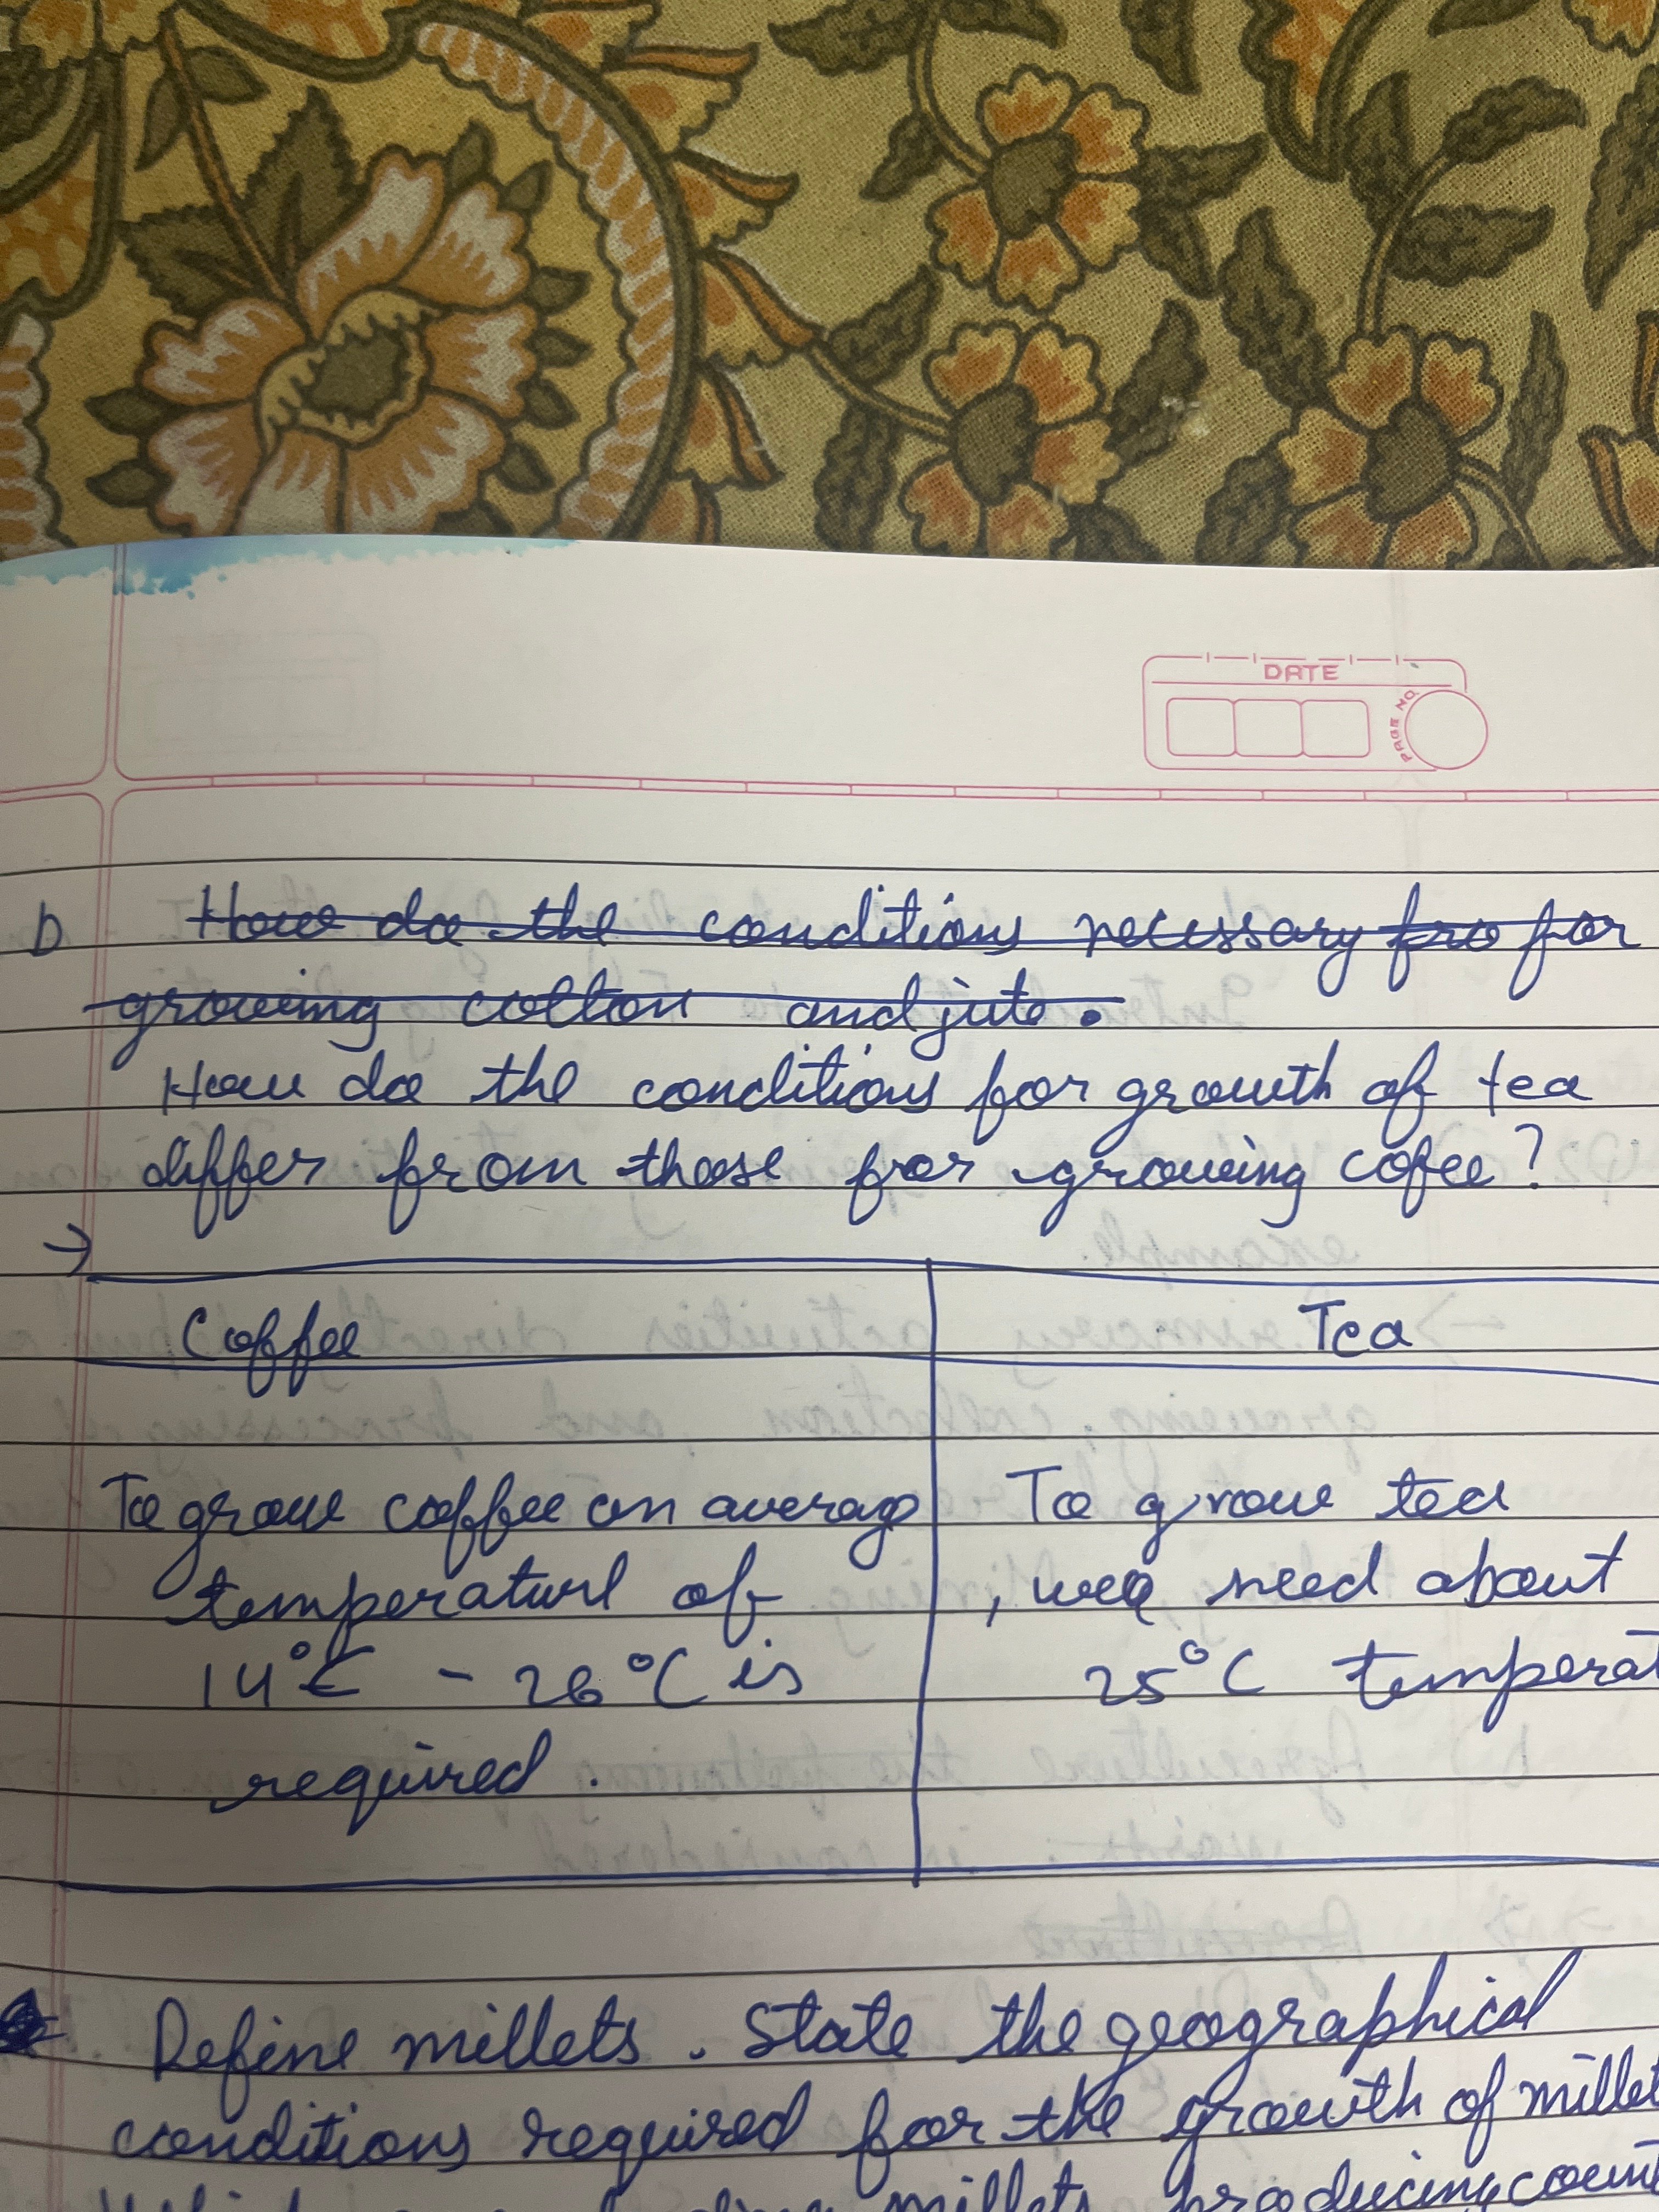 DATE
PAGE NO.
b How do the conditions necessary fro for
growing cotton and jute.
How do the conditions for growth of tea
differ from those for growing cofee?
→
Coffee Tea
To grow coffee an average To grow tea
temperature of , we need about
14°C - 26°C is 25°C temperat
required.
Define millets. State the geographical
conditions required for the growth of millet
millets producing count